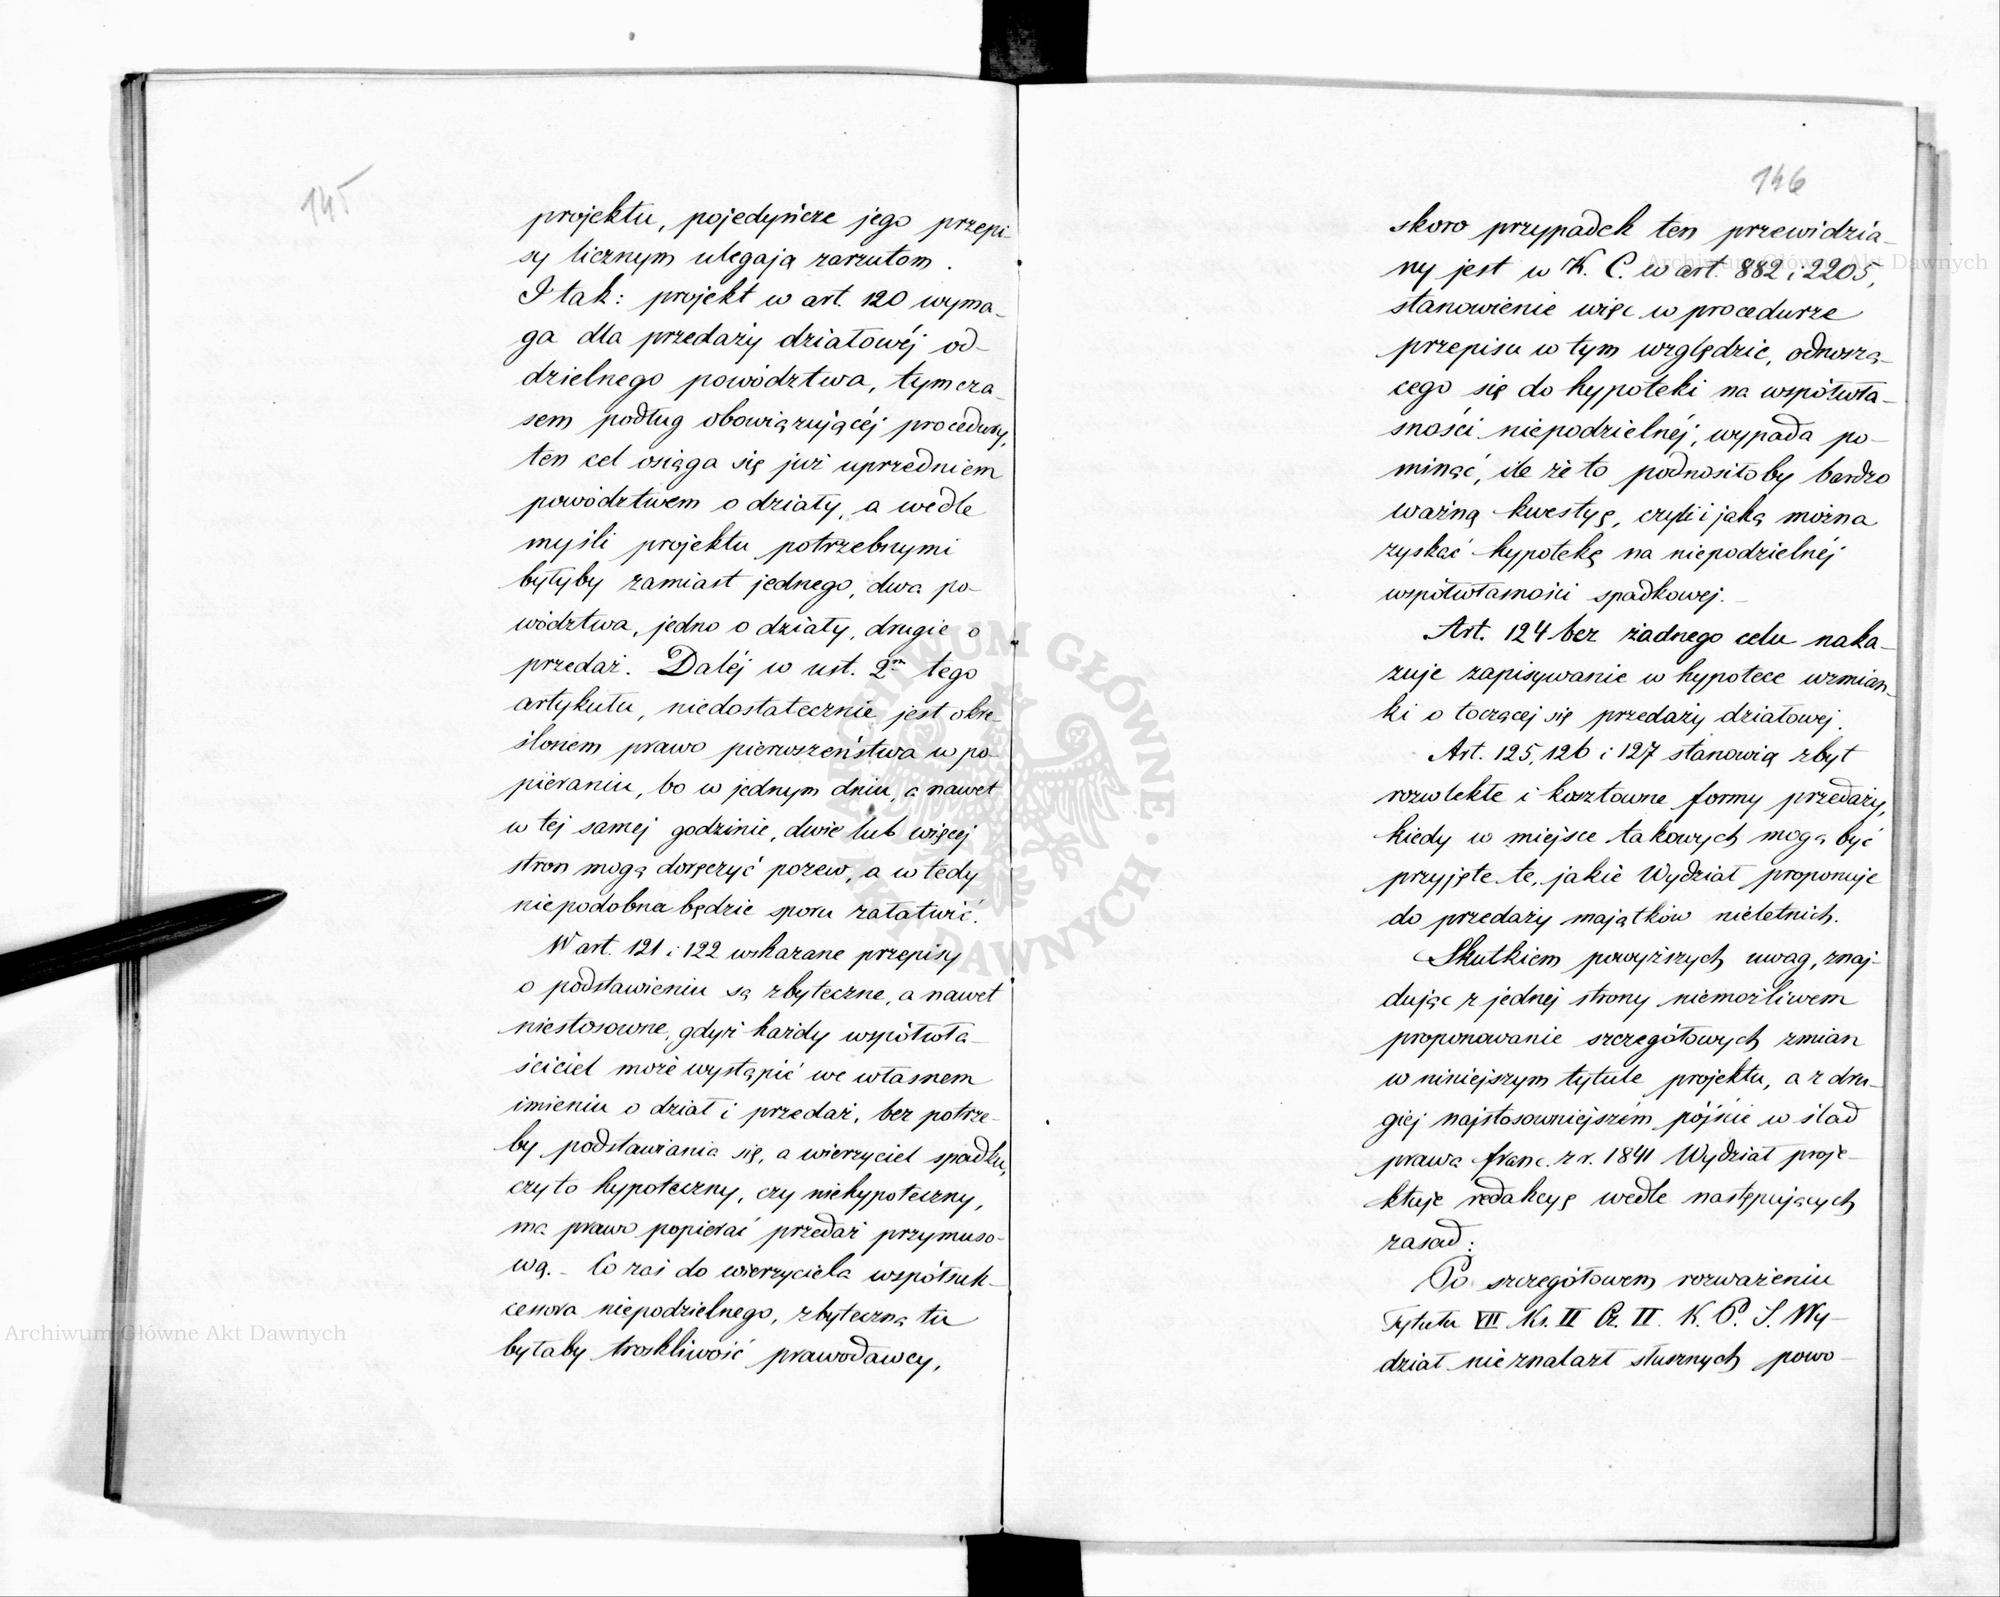 145
projektu, pojedyńcze jego przepi-
sy licznym ulegają zarzutom.
I tak: projekt w art. 120 wyma-
ga dla przedaży działowéj od-
dzielnego powództwa, tymcza-
sem podług obowiązującéj procedury,
ten cel osiąga się już uprzedniem
powództwem o działy, a wedle
myśli projektu potrzebnymi
byłyby zamiast jednego, dwa po-
wództwa, jedno o działy, drugie o
przedaż. Daléj w ust. 2m tego
artykułu, niedostatecznie jest okre-
ślonem prawo pierwszeństwa w po-
pieraniu, bo w jednym dniu, a nawet
w tej samej godzinie, dwie lub więcej
stron mogą doręczyć pozew, a wtedy
niepodobna będzie sporu załatwić.
W art. 121 i 122 wskazane przepisy
o podstawieniu są zbyteczne, a nawet
niestosowne, gdyż każdy współwła-
ściciel może wystąpić we własnem
imieniu o dział i przedaż, bez potrze-
by podstawiania się, a wierzyciel spadku,
czy to hypoteczny, czy niehypoteczny,
ma prawo popierać przedaż przymuso-
wą. - Co zaś do wierzyciela współsuk-
cessora niepodzielnego, zbyteczną tu
byłaby troskliwość prawodawcy,
146
skoro przypadek ten przewidzia-
ny jest w K. C. w art. 882 i 2205,
stanowienie więc w procedurze
przepisu w tym względzie, odnoszą-
cego się do hypoteki na współwła-
sności niepodzielnéj, wypada po-
minąć, ile że to podnosiłoby bardzo
ważną kwestyę, czyli i jaką można
zyskać hypotekę na niepodzielnéj
współwłasności spadkowej. -
Art. 124 bez żadnego celu naka-
zuje zapisywanie w hypotece wzmian-
ki o toczącej się przedaży działowej.
Art. 125, 126 i 127 stanowią zbyt
rozwlekłe i kosztowne formy przedaży,
kiedy w miejsce takowych mogą być
przyjęte te, jakie Wydział proponuje
do przedaży majątków nieletnich.
Skutkiem powyższych uwag, znaj-
dując z jednej strony niemożliwem
proponowanie szczegółowych zmian
w niniejszym tytule projektu, a z dru-
giej najstosowniejszém pójście w ślad
prawa franc. z r. 1841 Wydział proje-
ktuje redakcyę wedle następujących
zasad:
Po szczegółowem rozważeniu
Tytułu VII Ks. II Cz. II. K. P. S. Wy-
dział nie znalazł słusznych powo-
Archiwum Główne Akt Dawnych
Archiwum Główne Akt Dawnych
ARCHIWUM GŁÓWNE · AKT DAWNYCH ·